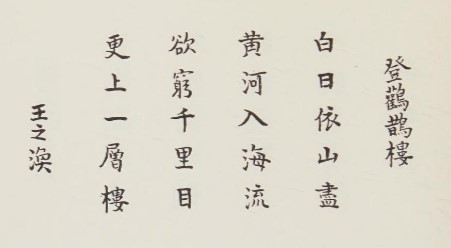 登鸛鵲樓
白日依山盡
黄河入海流
欲窮千里目
更上一層樓
王之渙